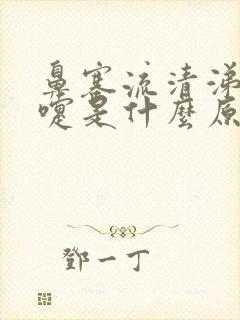 鼻塞流清涕
嚏是什麼原
鄧一丁